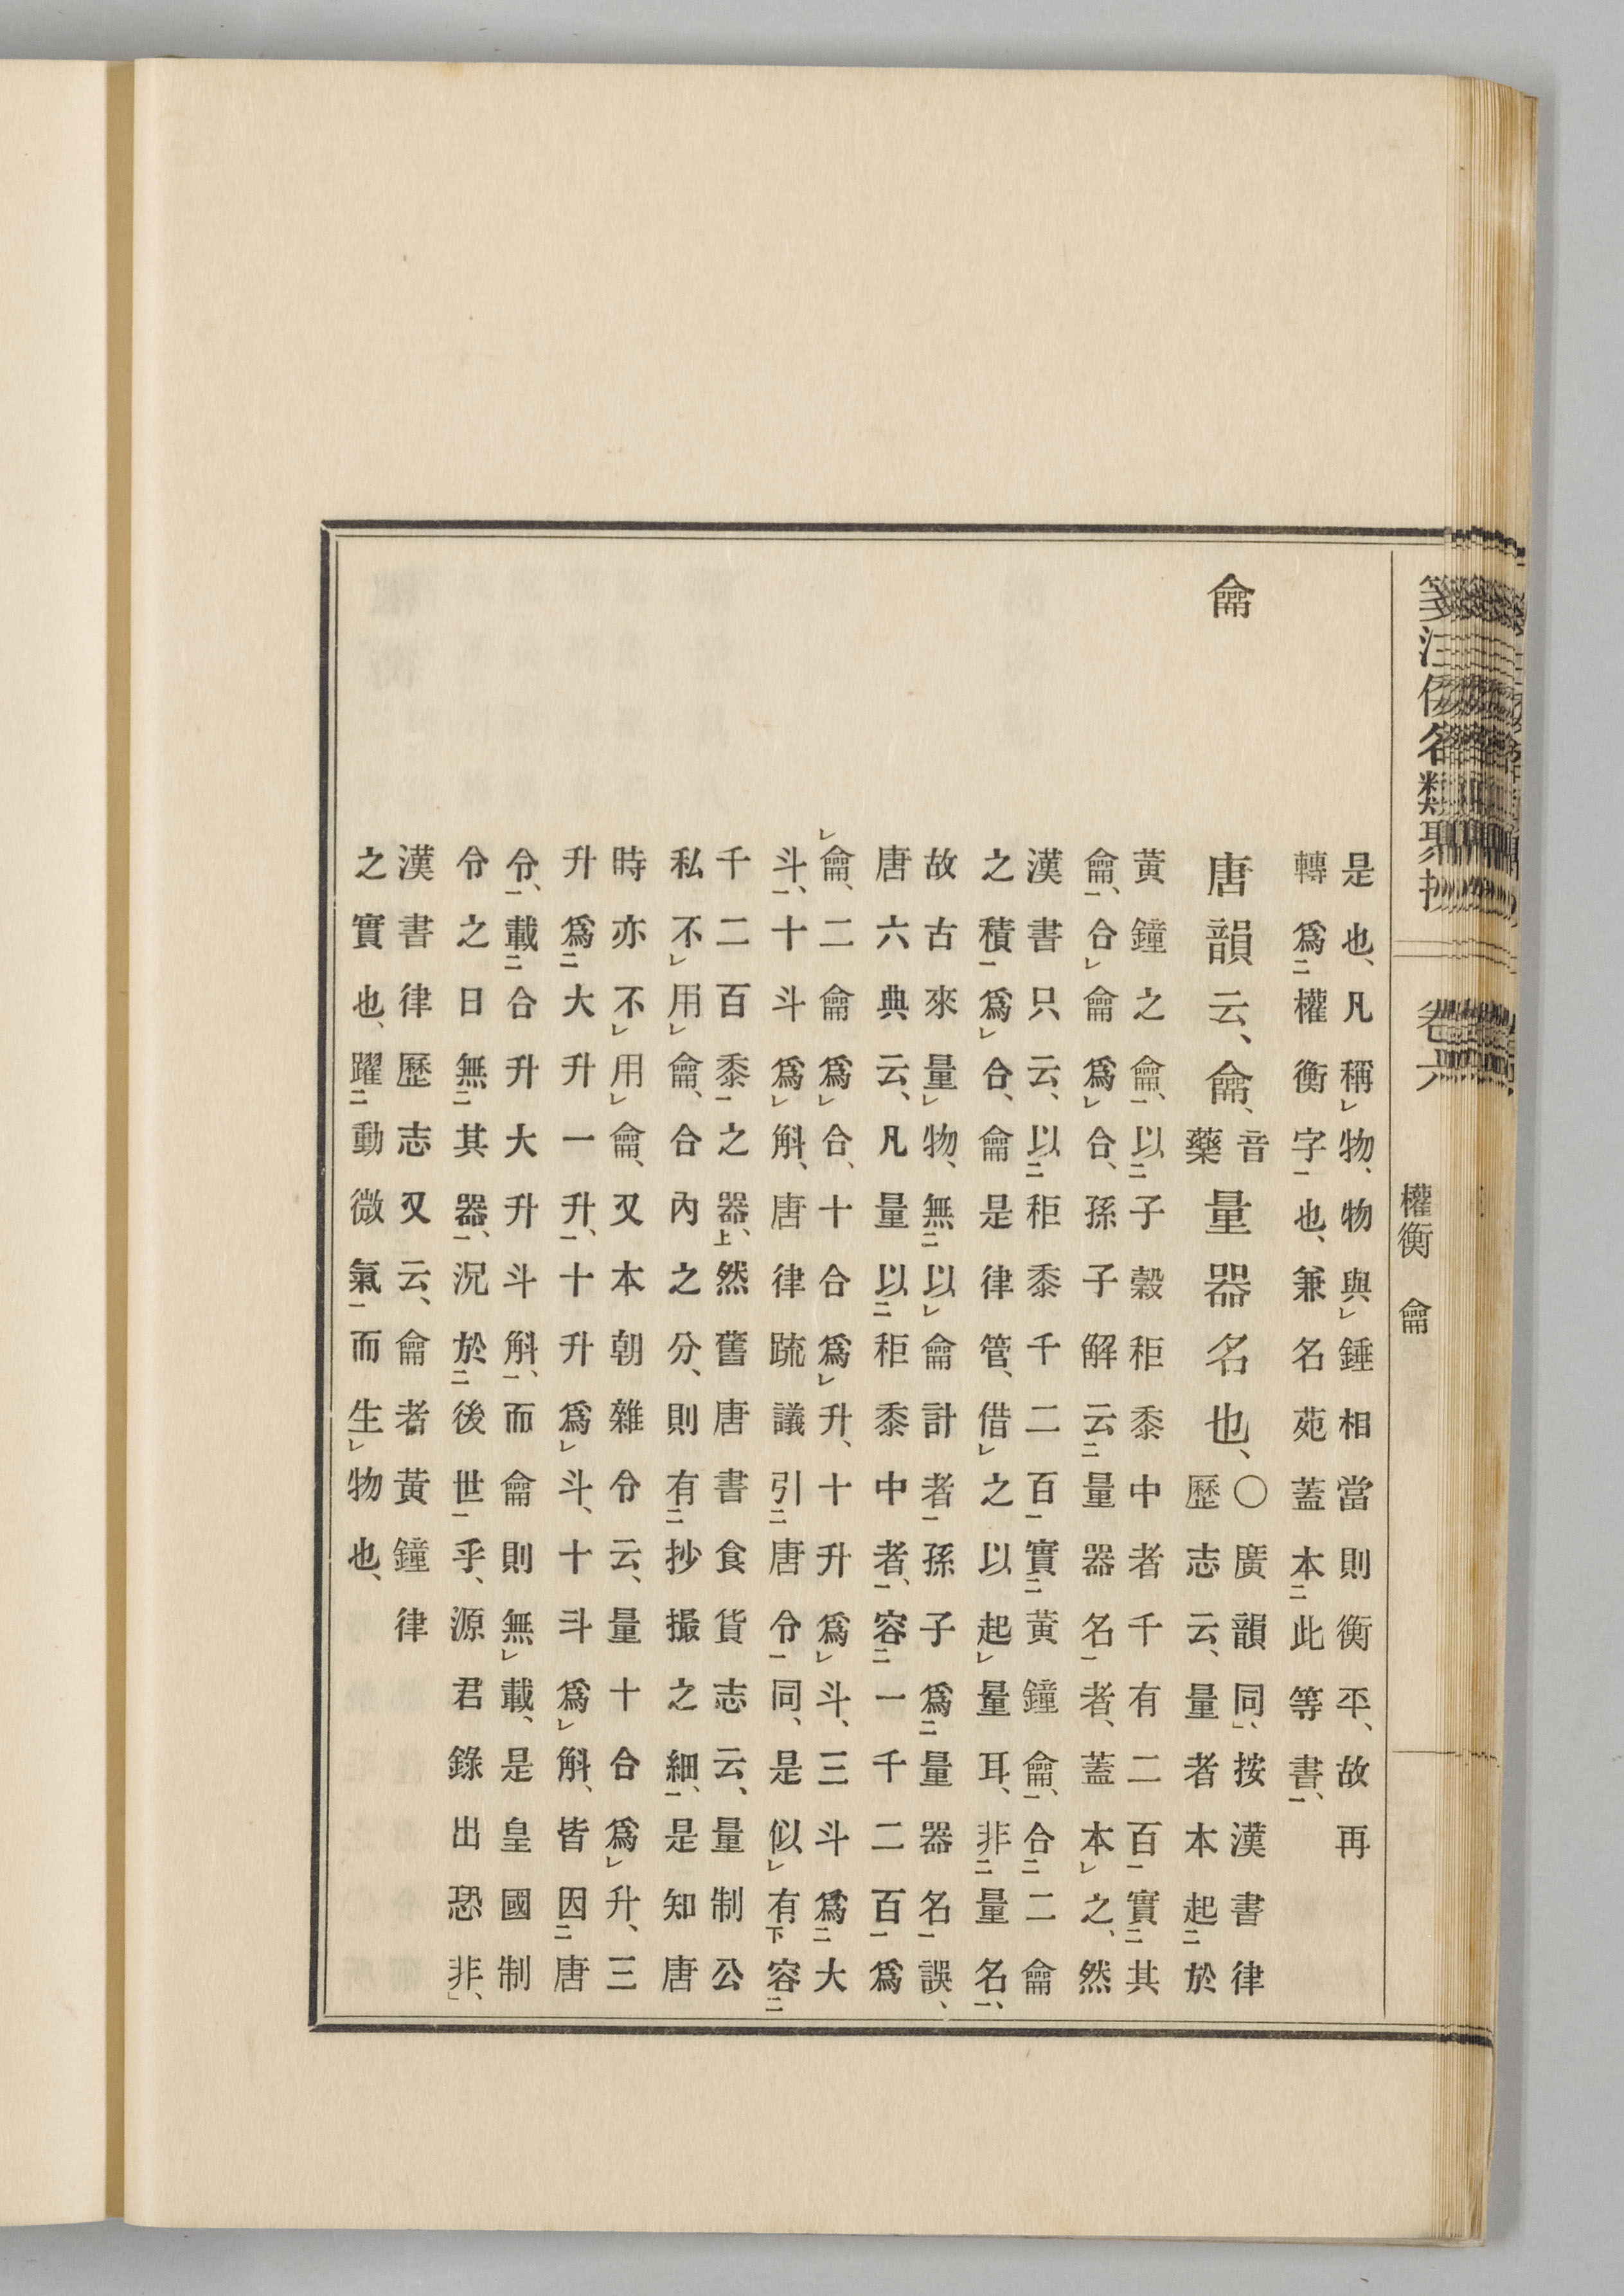 箋注倭名類聚抄 卷六 權衡 龠
是也、凡稱㆑物、物與㆑錘相當則衡平、故再
轉爲㆓權衡字㆒也、兼名苑蓋本㆓此等書㆒、
龠
唐韻云、龠、音藥量器名也、
○廣韻同、按漢書律
歷志云、量者本起㆓於
黃鐘之龠㆒、以㆓子穀秬黍中者千有二百㆒實㆓其
龠㆒、合㆑龠爲㆑合、孫子解云㆓量器名㆒者、蓋本㆑之、然
漢書只云、以㆓秬黍千二百㆒實㆓黃鐘龠㆒、合㆓二龠
之積㆒爲㆑合、龠是律管、借㆑之以起㆑量耳、非㆓量名㆒、
故古來量㆑物、無㆓以㆑龠計者㆒孫子爲㆓量器名㆒誤、
唐六典云、凡量以㆓秬黍中者㆒、容㆓一千二百㆒爲
㆑龠、二龠爲㆑合、十合爲㆑升、十升爲㆑斗、三斗爲㆓大
斗㆒、十斗爲㆑斛、唐律疏議引㆓唐令㆒同、是似㆑有㆘容㆓
千二百黍㆒之器㆖、然舊唐書食貨志云、量制公
私不㆑用㆑龠、合內之分、則有㆓抄撮之細㆒、是知唐
時亦不㆑用㆑龠、又本朝雜令云、量十合爲㆑升、三
升爲㆓大升一升㆒、十升爲㆑斗、十斗爲㆑斛、皆因㆓唐
令㆒、載㆓合升大升斗斛㆒、而龠則無㆑載、是皇國制
令之日無㆓其器㆒、況於㆓後世㆒乎、源君錄出恐非、
漢書律歷志又云、龠者黃鐘律
之實也、躍㆓動微氣㆒而生㆑物也、